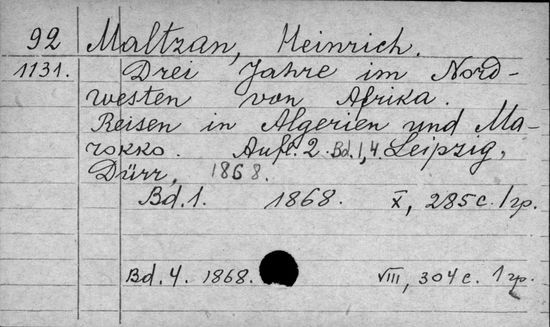 92 Maltzan, Heinrich.
1131. Drei Jahre im Nord-
westen von Afrika.
Reisen in Algerien und Ma-
rokko. Aufl. 2. Bd. 1, 4. Leipzig,
Dürr, 1868.
Bd. 1. 1868. X, 285 c. 1 гр.
Bd. 4. 1868. VIII, 304 c. 1 гр.